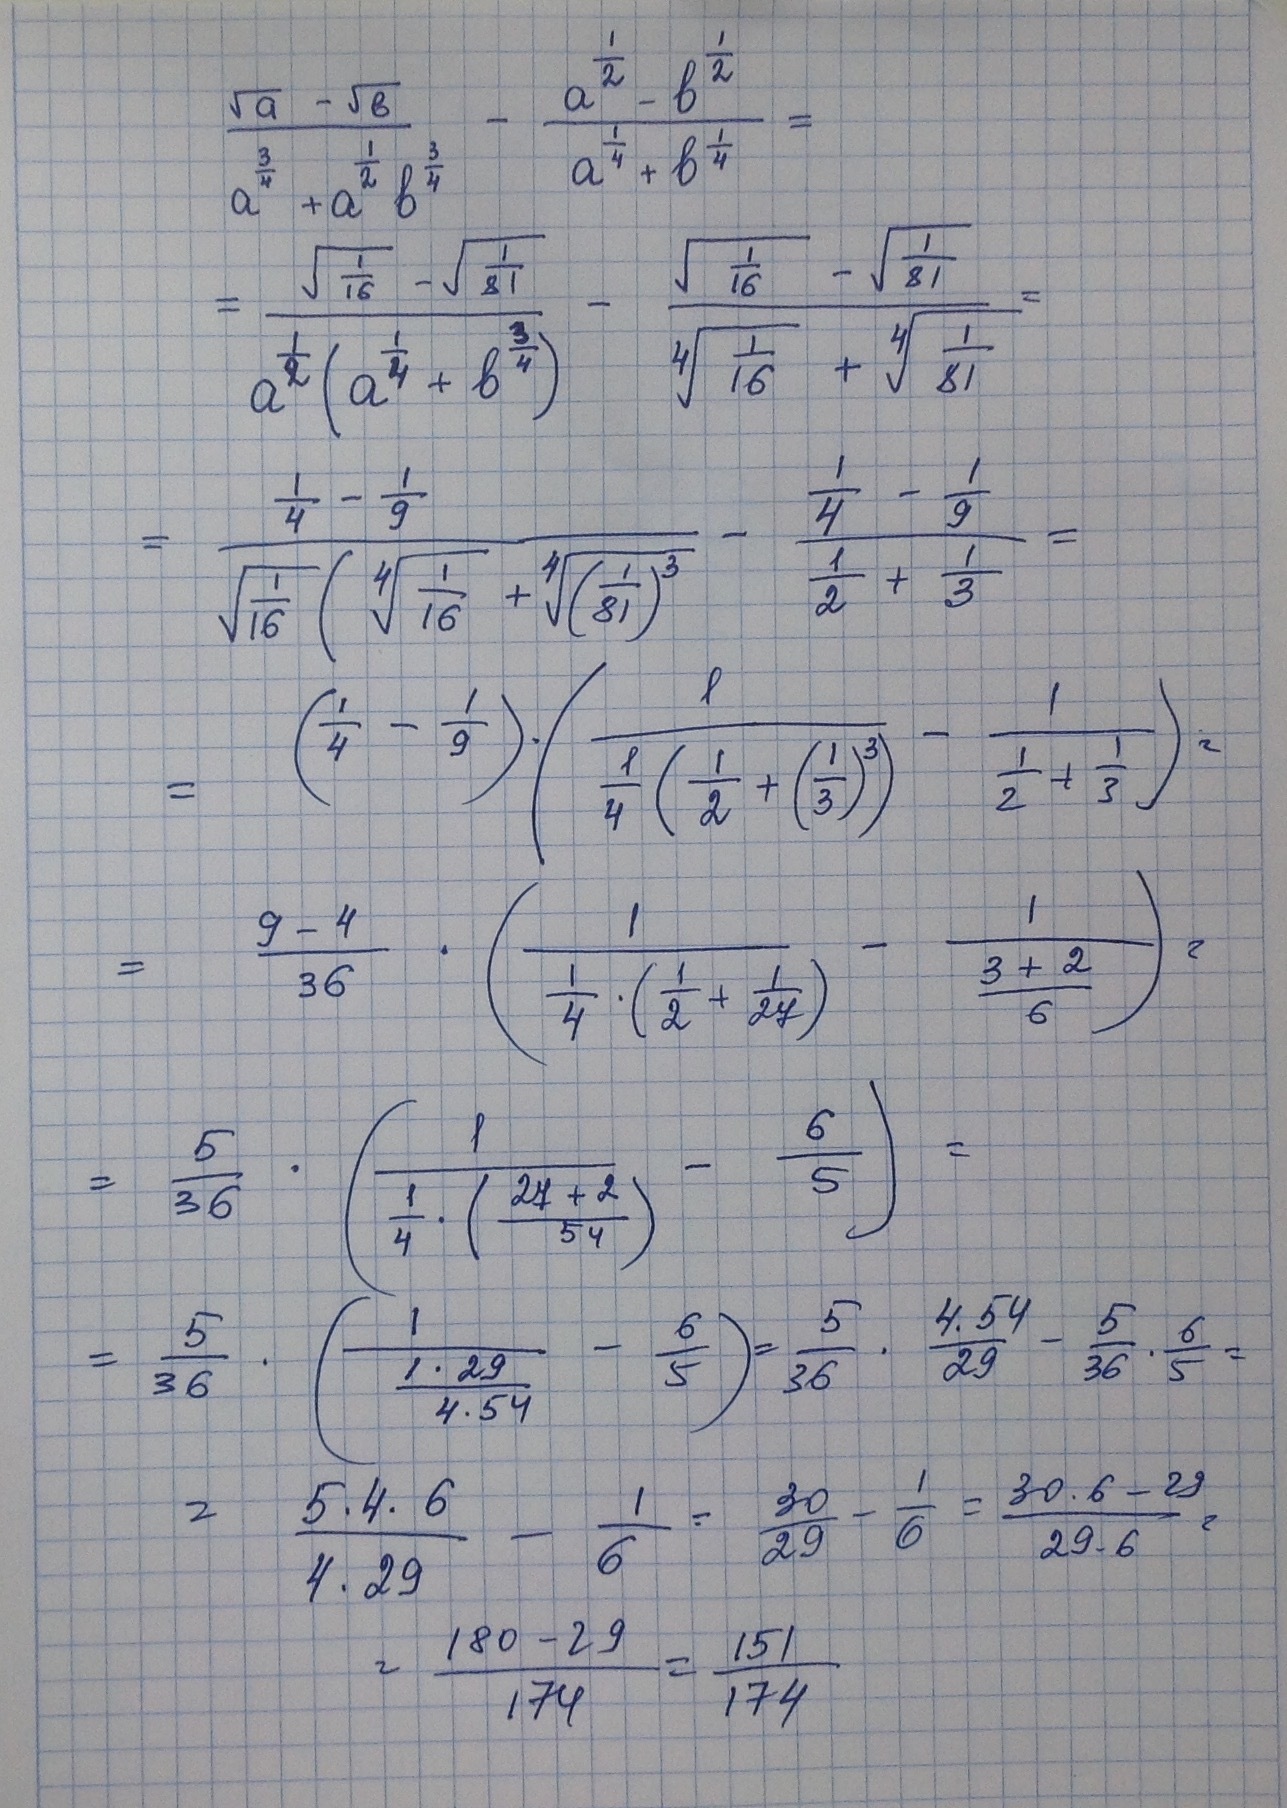 (√a - √b)/(a^(3/4) + a^(1/2) b^(3/4)) - (a^(1/2) - b^(1/2))/(a^(1/4) + b^(1/4)) =
= (√(1/16) - √(1/81))/(a^(1/2)(a^(1/4) + b^(3/4))) - (√(1/16) - √(1/81))/(∜(1/16) + ∜(1/81)) =
= (1/4 - 1/9)/(√(1/16)(∜(1/16) + ∜((1/81)^3)) - (1/4 - 1/9)/(1/2 + 1/3) =
= (1/4 - 1/9) · (1/(1/4(1/2 + (1/3)^3)) - 1/(1/2 + 1/3)) =
= (9 - 4)/36 · (1/(1/4 · (1/2 + 1/27)) - 1/((3 + 2)/6)) =
= 5/36 · (1/(1/4 · ((27 + 2)/54)) - 6/5) =
= 5/36 · (1/((1 · 29)/(4 · 54)) - 6/5) = 5/36 · (4 · 54)/29 - 5/36 · 6/5 =
= (5 · 4 · 6)/(4 · 29) - 1/6 = 30/29 - 1/6 = (30 · 6 - 29)/(29 · 6) =
= (180 - 29)/174 = 151/174